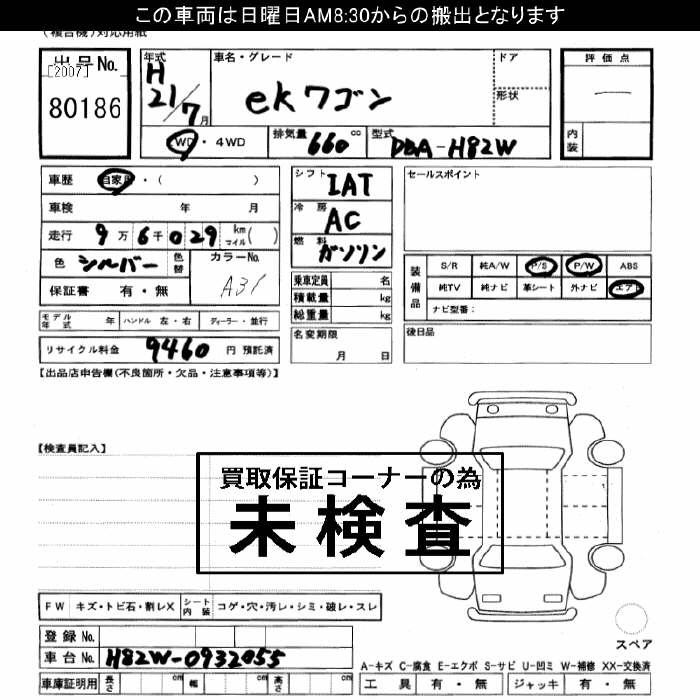 この車両は日曜日AM8:30からの搬出となります
(複合機)対応用紙
出品No. [2007] 80186
年式 H21/7月
車名・グレード ekワゴン
ドア
形状
評価点 —
内装
2WD・4WD 排気量 660 cc 型式 DBA-H82W
車歴 自家用・( )
車検 年 月
走行 9万6千029 km マイル( )
色 シルバー 色替 カラーNo. A31
保証書 有・無
シフト IAT
冷房 AC
燃料 ガソリン
乗車定員 名
積載量 kg
総重量 kg
セールスポイント
装備品 S/R 純A/W P/S P/W ABS
純TV 純ナビ 革シート 外ナビ エアB
ナビ型番:
モデル年式 年 ハンドル 左・右 ディーラー・並行
名変期限 月 日
後日品
リサイクル料金 9460 円 預託済
【出品店申告欄(不良箇所・欠品・注意事項等)】
【検査員記入】
買取保証コーナーの為
未検査
FW キズ・トビ石・割レX シート内装 コゲ・穴・汚レ・シミ・破レ・スレ
登録No.
車台No. H82W-0932055
スペア
A-キズ C-腐食 E-エクボ S-サビ U-凹ミ W-補修 XX-交換済
車庫証明用 長さ cm 幅 cm 高さ cm
工具 有・無 ジャッキ 有・無